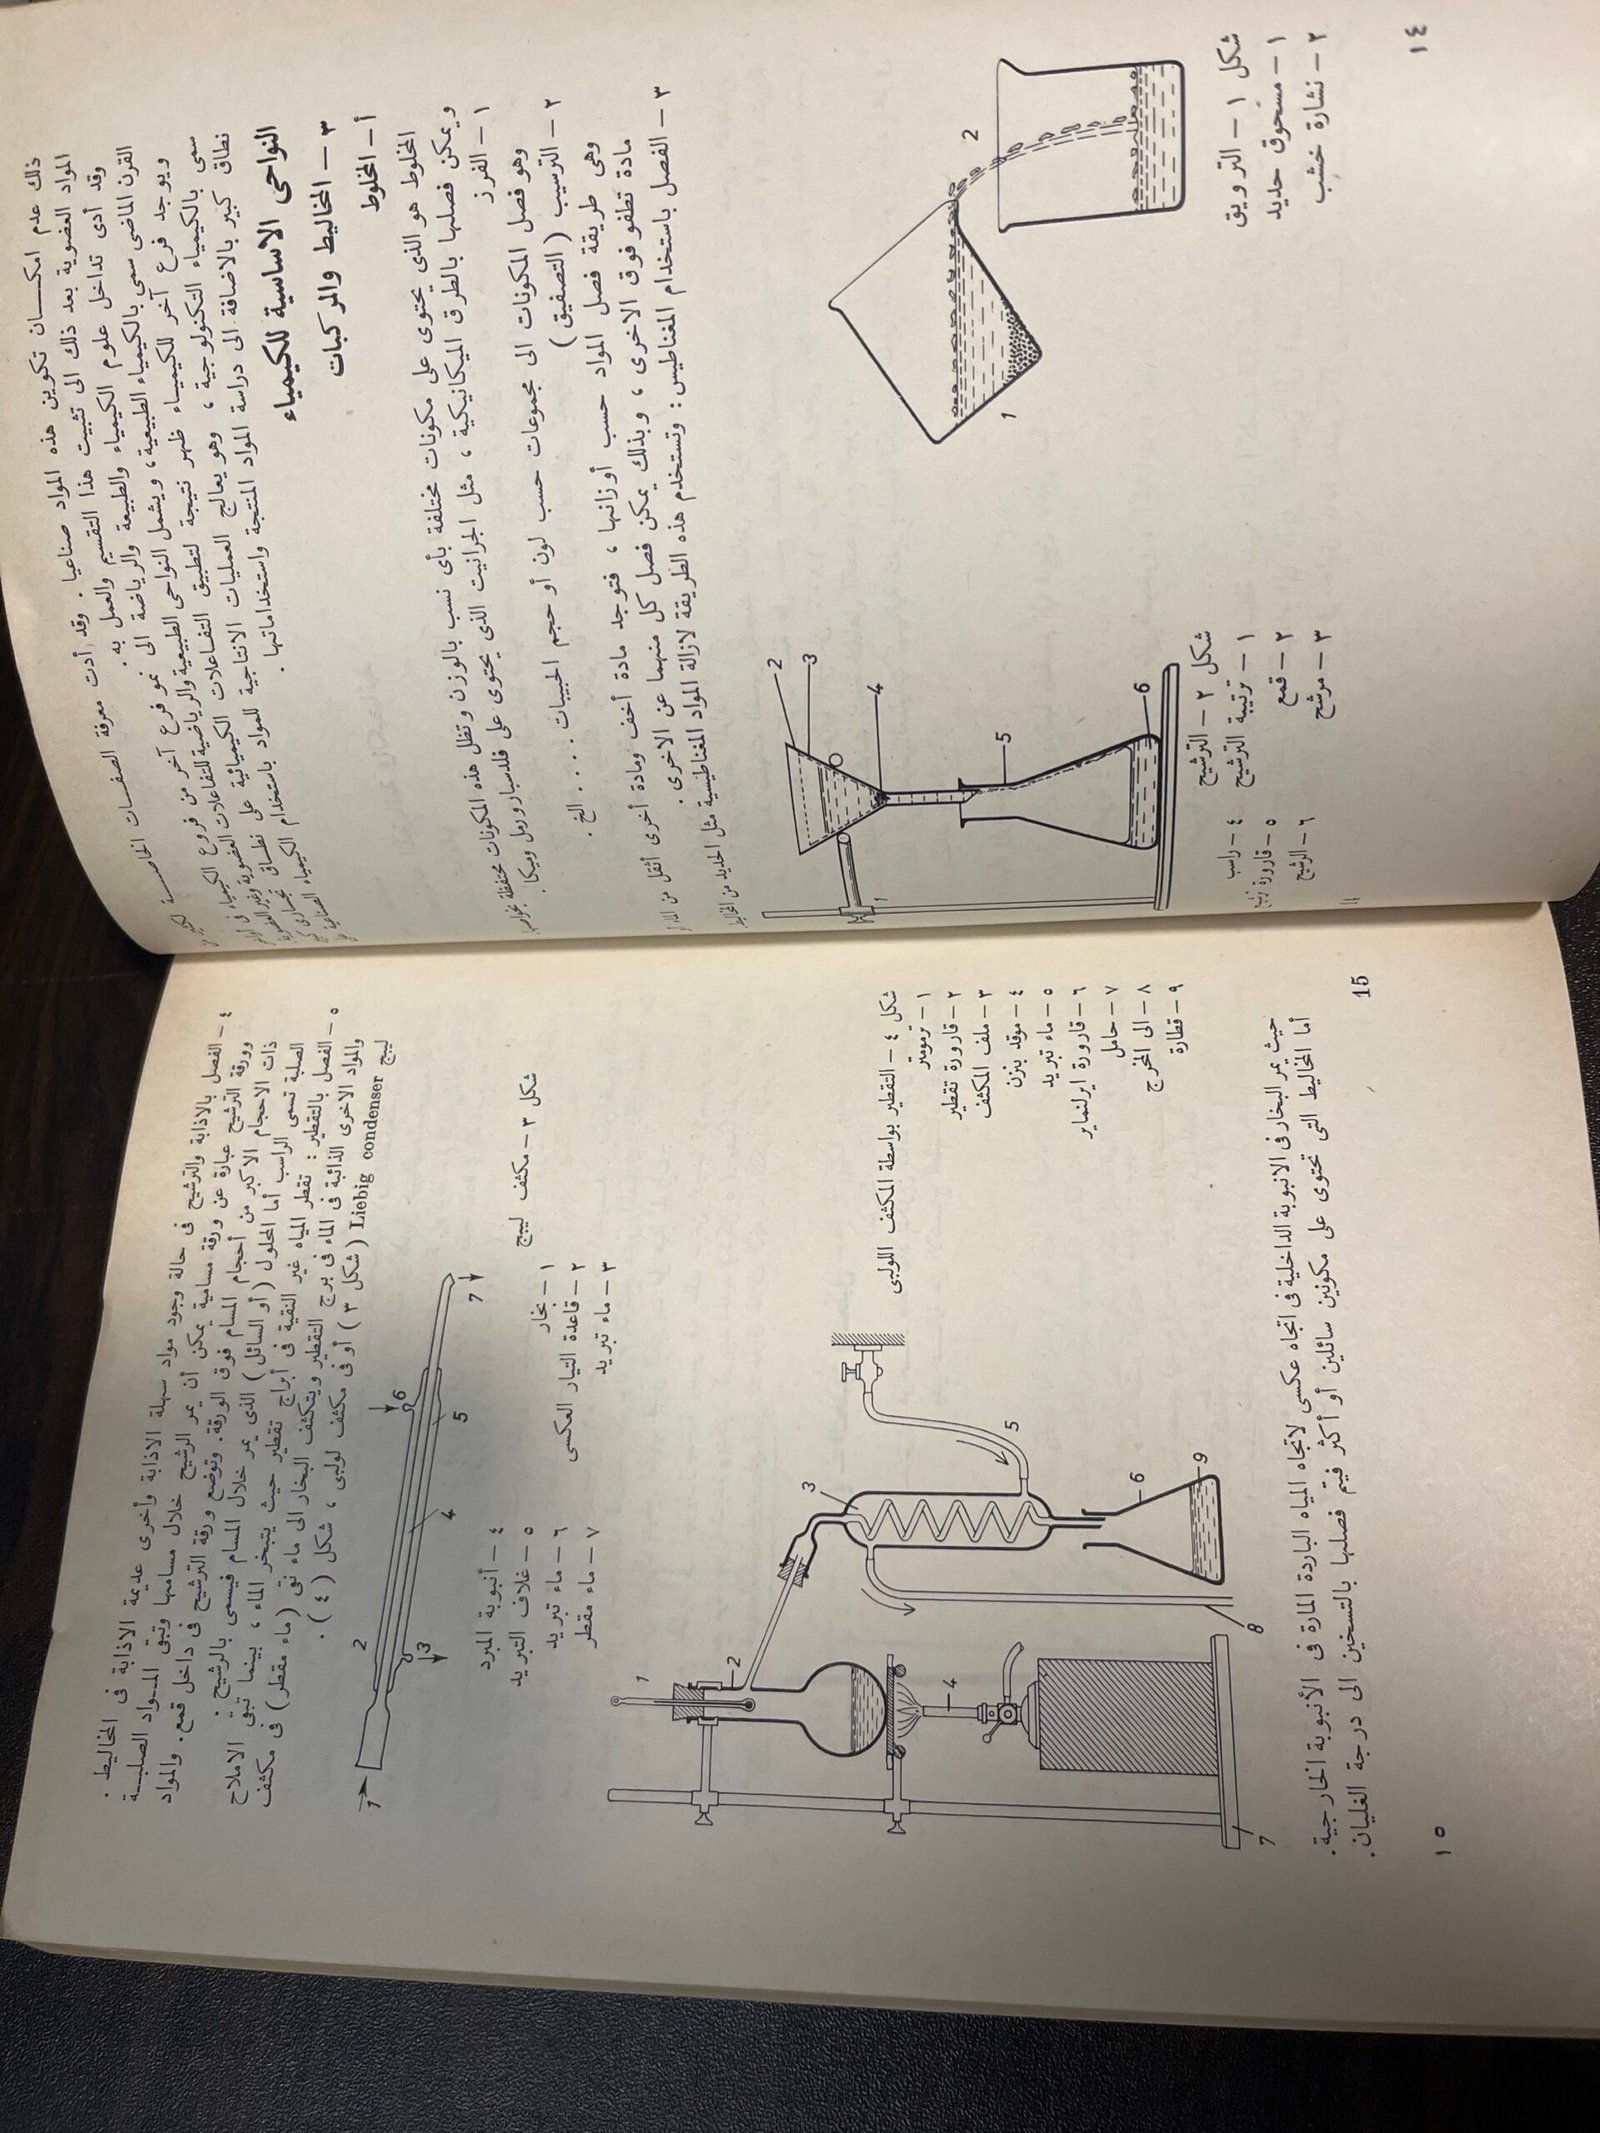 ذلك عدم امكان تكوين هذه المواد صناعيا . وقد أدت معرفة الصفات الخاصة
المواد العضوية بعد ذلك الى تثبيت هذا التقسيم والعمل به .
وقد أدى تداخل علوم الكيمياء والطبيعة والرياضة الى نمو فرع آخر من فروع الكيمياء فى
القرن الماضى سمى بالكيمياء الطبيعية ، ويشمل النواحى الطبيعية والرياضية للتفاعلات العضوية وغير العضوية
ويوجد فرع آخر للكيمياء ظهر نتيجة لتطبيق التفاعلات الكيميائية على نطاق تجارى
سمى بالكيمياء التكنولوجية ، وهو يعالج العمليات الانتاجية للمواد باستخدام الكيمياء الصناعية على
نطاق كبير بالاضافة الى دراسة المواد المنتجة واستخداماتها .
النواحى الاساسية للكيمياء
٣ – المخاليط والمركبات
أ – المخلوط
المخلوط هو الذى يحتوى على مكونات مختلفة بأى نسب بالوزن وتظل هذه المكونات محتفظة بخواصها
ويمكن فصلها بالطرق الميكانيكية ، مثل الجرانيت الذى يحتوى على فلدسبار ورمل وميكا .
١ – الفرز
وهو فصل المكونات الى مجموعات حسب لون أو حجم الحبيبات . . . . الخ .
٢ – الترسيب ( التصفيق )
وهى طريقة فصل المواد حسب أوزانها ، فتوجد مادة أخف ومادة أخرى أثقل من الماء
مادة تطفو فوق الاخرى ، وبذلك يمكن فصل كل منهما عن الاخرى .
٣ – الفصل باستخدام المغناطيس : وتستخدم هذه الطريقة لازالة المواد المغناطيسية مثل الحديد من المخاليط
1
2
شكل ١ – الترويق
١ – مسحوق حديد
٢ – نشارة خشب
1
2
3
4
5
6
شكل ٢ – الترشيح
١ – ترتيبة الترشيح
٢ – قمع
٣ – مرشح
٤ – راسب
٥ – قارورة
٦ – الرشيح
١٤
٤ – الفصل بالاذابة والترشيح فى حالة وجود مواد سهلة الاذابة وأخرى عديمة الاذابة فى المخاليط .
وورقة الترشيح عبارة عن ورقة مسامية يمكن أن يمر الرشيح خلال مسامها وتبقى المواد الصلبة
ذات الاحجام الاكبر من أحجام المسام فوق الورقة . وتوضع ورقة الترشيح فى داخل قمع . والمواد
الصلبة تسمى الراسب أما المحلول ( أو السائل ) الذى يمر خلال المسام فيسمى بالرشيح .
٥ – الفصل بالتقطير : تقطر المياه غير النقية فى أبراج تقطير حيث يتبخر الماء ، بينما تبقى الاملاح
والمواد الاخرى الذائبة فى الماء فى برج التقطير ويتكثف البخار الى ماء نقى ( ماء مقطر ) فى مكثف
ليبج Liebig condenser ( شكل ٣ ) أو فى مكثف لولبى ، شكل ( ٤ ) .
1
2
3
4
5
6
7
شكل ٣ – مكثف ليبج
١ – بخار
٢ – قاعدة التيار العكسى
٣ – ماء تبريد
٤ – أنبوبة المبرد
٥ – غلاف التبريد
٦ – ماء تبريد
٧ – ماء مقطر
1
2
3
4
5
6
7
8
9
شكل ٤ – التقطير بواسطة المكثف اللولبى
١ – ترمومتر
٢ – قارورة تقطير
٣ – ملف المكثف
٤ – موقد بنزن
٥ – ماء تبريد
٦ – قارورة ايرلنماير
٧ – حامل
٨ – الى المخرج
٩ – قطارة
حيث يمر البخار فى الانبوبة الداخلية فى اتجاه عكسى لاتجاه المياه الباردة المارة فى الأنبوبة الخارجية .
أما المخاليط التى تحتوى على مكونين سائلين أو أكثر فيتم فصلها بالتسخين الى درجة الغليان .
15
١٥